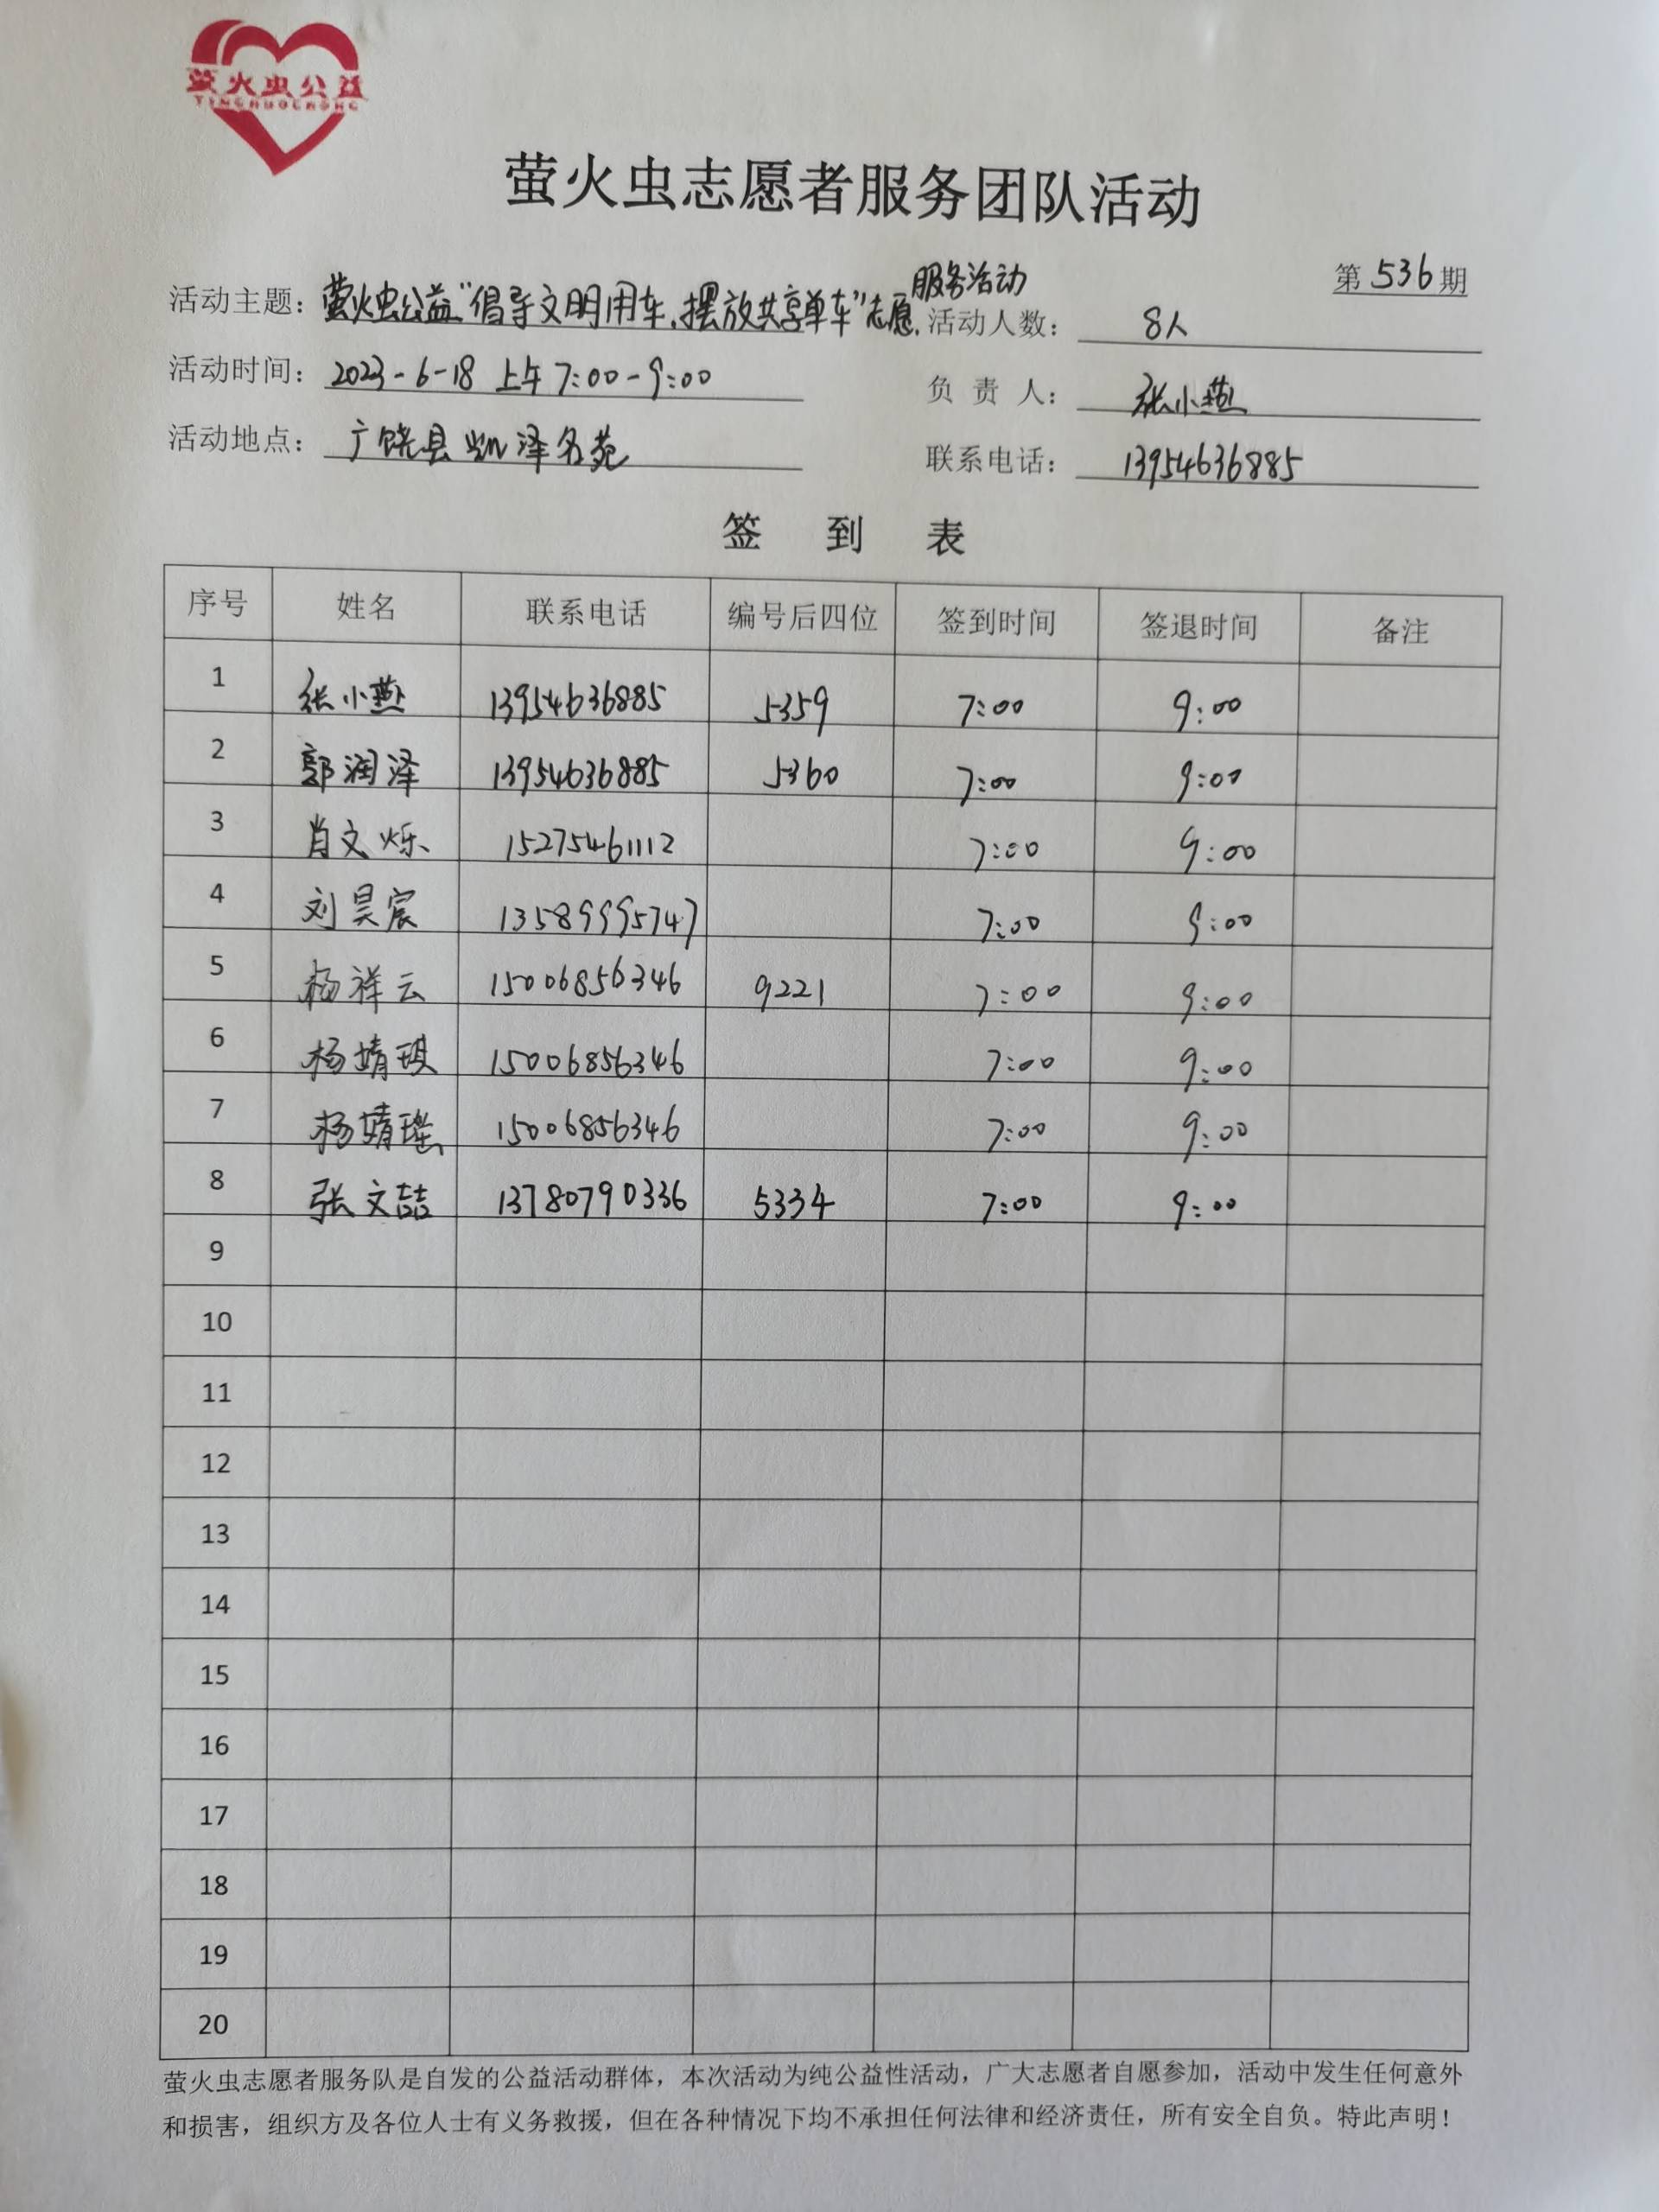 萤火虫公益
YINGHUOCHONG
萤火虫志愿者服务团队活动
第536期
活动主题：萤火虫公益"倡导文明用车,摆放共享单车"志愿服务活动
活动人数：8人
活动时间：2023-6-18 上午7:00-9:00
负 责 人：张小燕
活动地点：广饶县凯泽名苑
联系电话：13954636885
签 到 表
序号 姓名 联系电话 编号后四位 签到时间 签退时间 备注
1 张小燕 13954636885 5359 7:00 9:00
2 郭润泽 13954636885 5360 7:00 9:00
3 肖文烁 15275461112 7:00 9:00
4 刘昊宸 13589995747 7:00 9:00
5 杨祥云 15006856346 9221 7:00 9:00
6 杨婧琪 15006856346 7:00 9:00
7 杨婧瑶 15006856346 7:00 9:00
8 张文喆 13780790336 5334 7:00 9:00
9
10
11
12
13
14
15
16
17
18
19
20
萤火虫志愿者服务队是自发的公益活动群体，本次活动为纯公益性活动，广大志愿者自愿参加，活动中发生任何意外
和损害，组织方及各位人士有义务救援，但在各种情况下均不承担任何法律和经济责任，所有安全自负。特此声明！